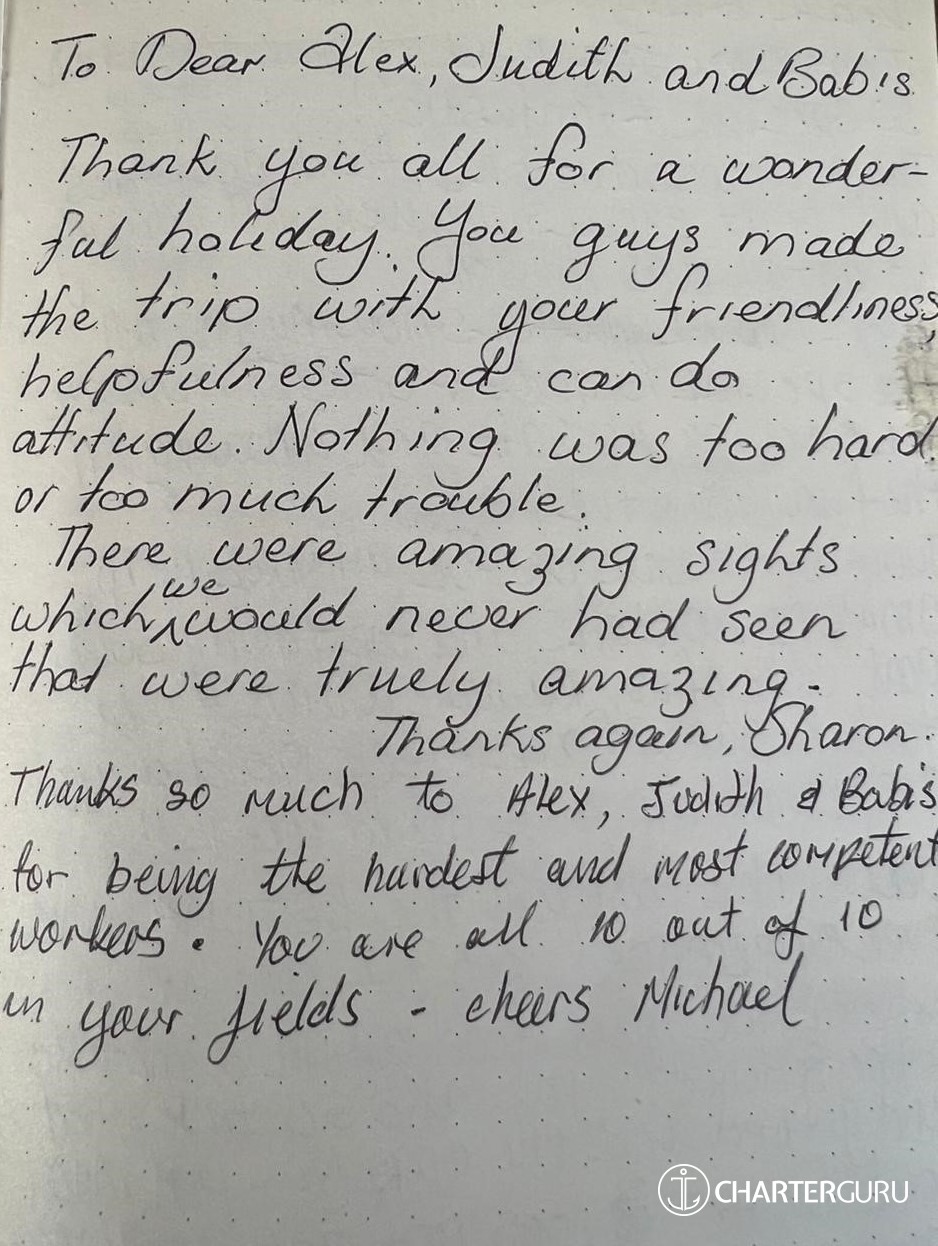 To Dear Alex, Judith and Babis.
Thank you all for a wonder-
ful holiday. You guys made
the trip with your friendliness,
helpfulness and can do
attitude. Nothing was too hard
or too much trouble.
There were amazing sights
which we would never had seen
that were truely amazing.
Thanks again, Sharon.
Thanks so much to Alex, Judith & Babis
for being the hardest and most competent
workers. You are all 10 out of 10
in your fields - cheers Michael
CHARTERGURU